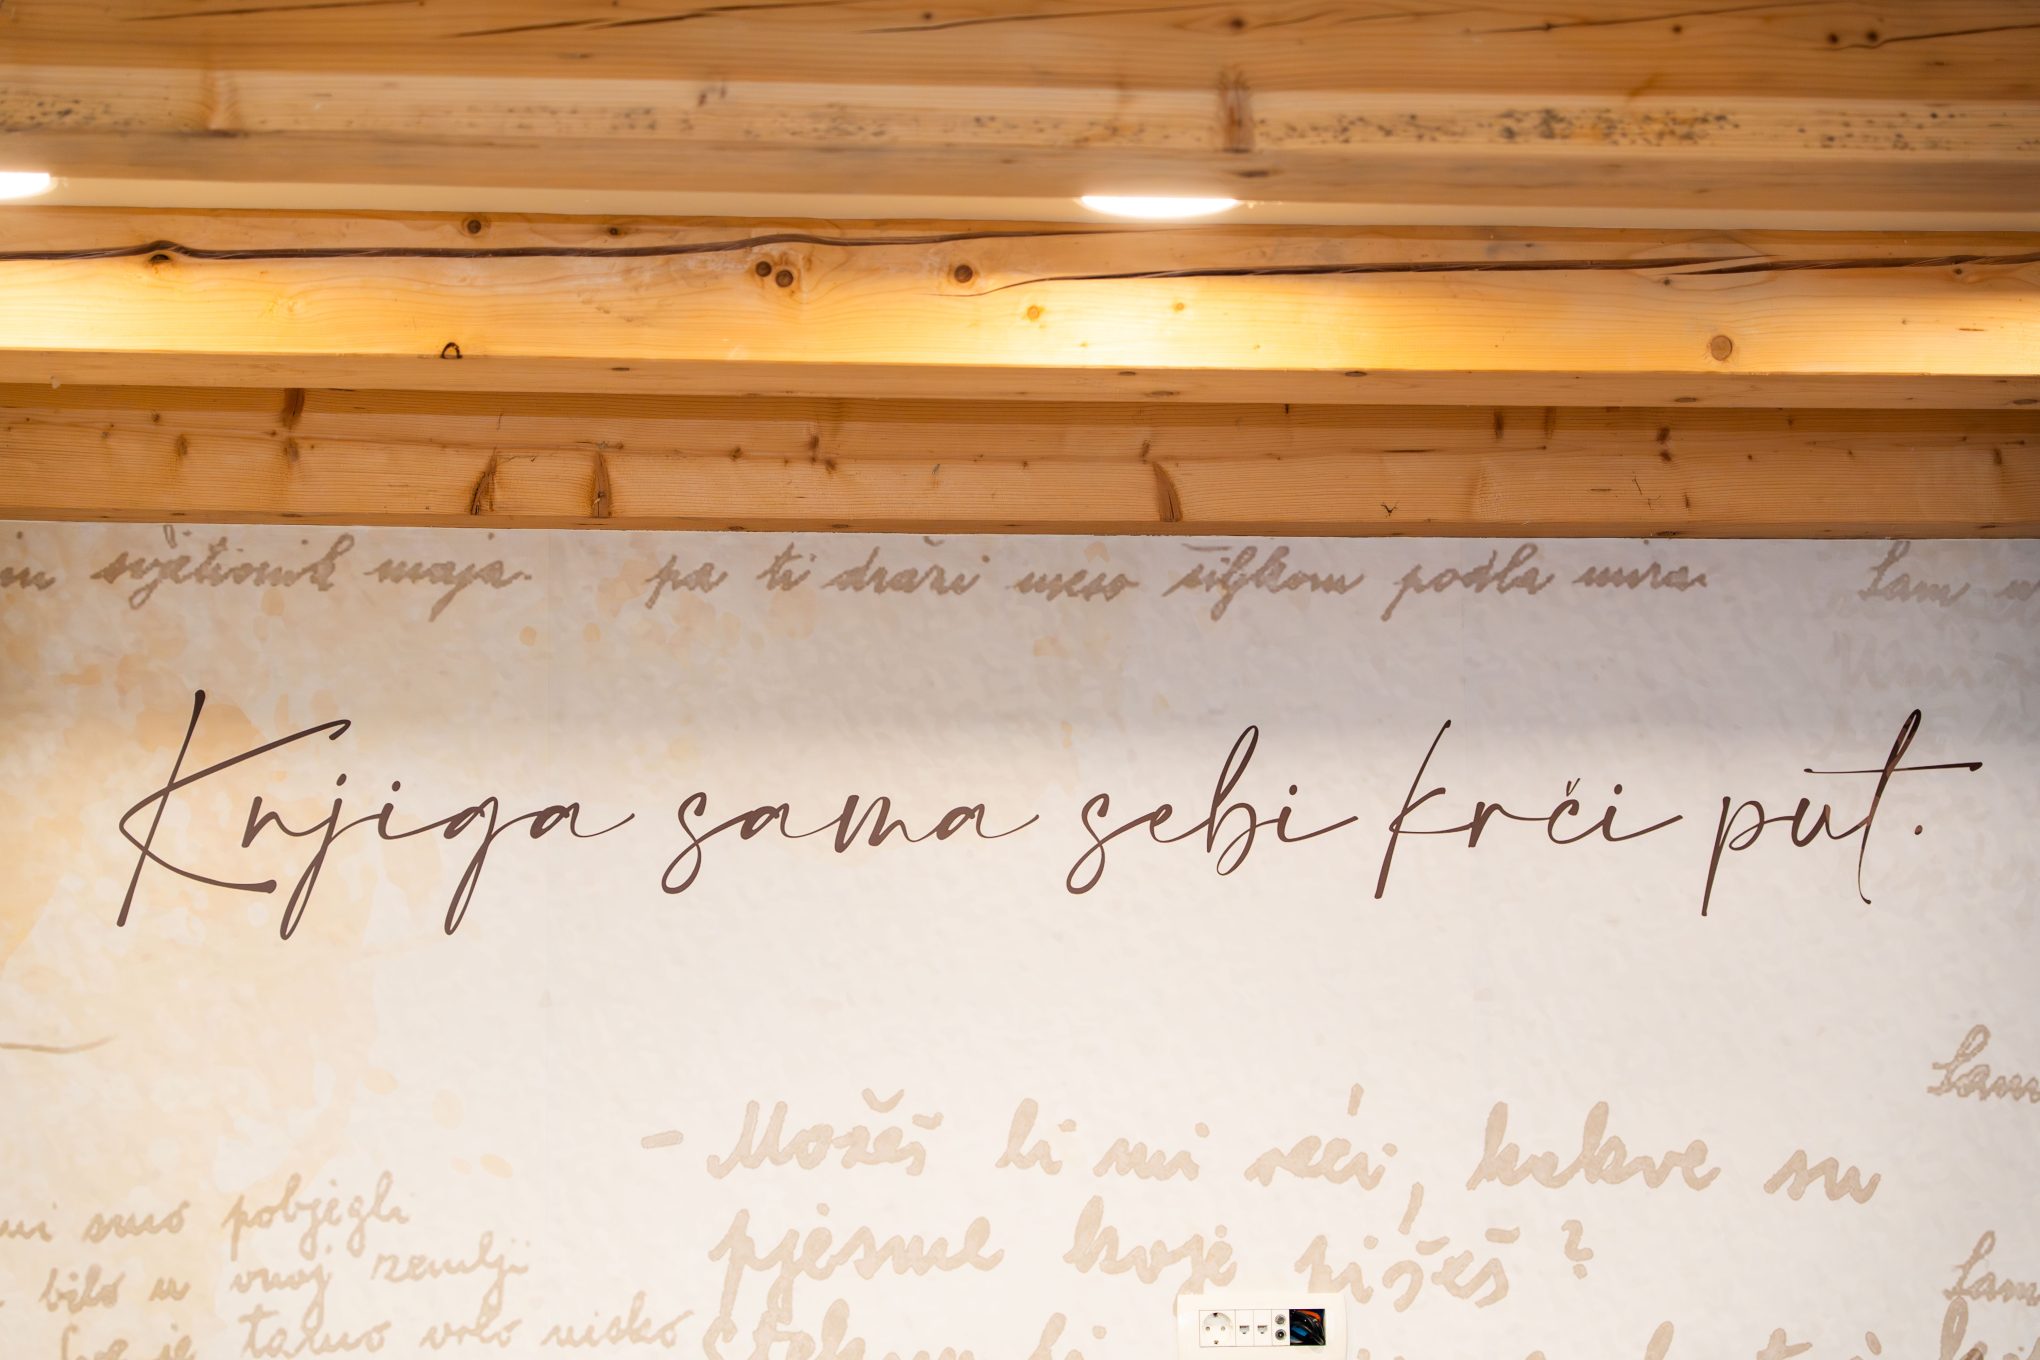 svjetionik maja.
pa ti draži meso šiljkom podla mira.
Sam
Knjiga sama sebi krči put.
Sam
- Možeš li mi reći, kakve su
pjesme koje pišeš?
smo pobjegli
bilo u onoj zemlji
je tamo vrlo visko
Sam